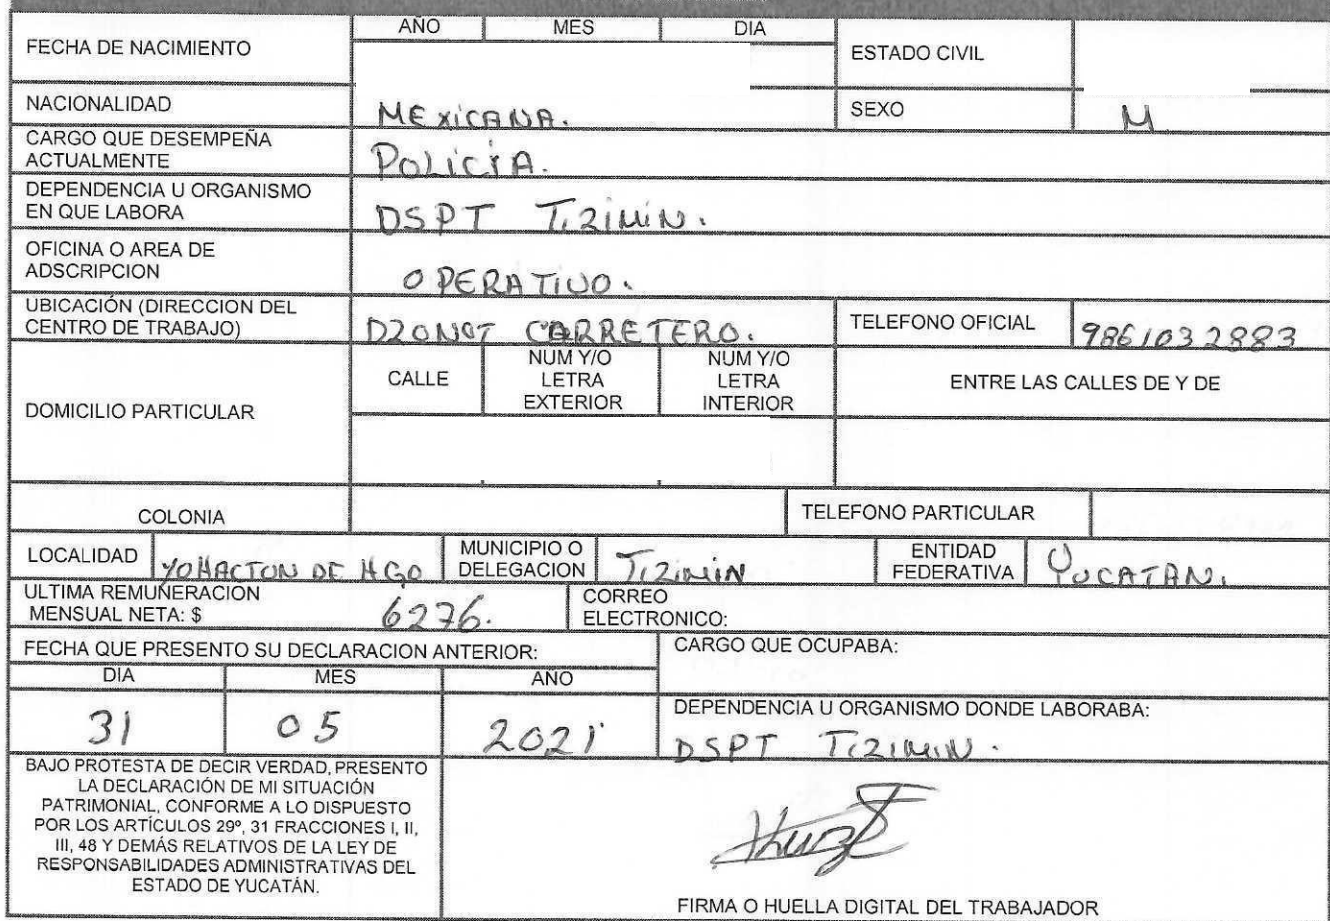 AÑO MES DIA
FECHA DE NACIMIENTO
ESTADO CIVIL
NACIONALIDAD MEXICANA. SEXO M
CARGO QUE DESEMPEÑA
ACTUALMENTE
POLICIA.
DEPENDENCIA U ORGANISMO
EN QUE LABORA
DSPT TIZIMIN.
OFICINA O AREA DE
ADSCRIPCION
OPERATIVO.
UBICACIÓN (DIRECCION DEL
CENTRO DE TRABAJO)
DZONOT CARRETERO.
TELEFONO OFICIAL 9861032883
DOMICILIO PARTICULAR
CALLE
NUM Y/O
LETRA
EXTERIOR
NUM Y/O
LETRA
INTERIOR
ENTRE LAS CALLES DE Y DE
COLONIA
TELEFONO PARTICULAR
LOCALIDAD DE HGO
MUNICIPIO O
DELEGACION
TIZIMIN
ENTIDAD
FEDERATIVA
YUCATAN.
ULTIMA REMUNERACION
MENSUAL NETA: $ 6276.
CORREO
ELECTRONICO:
FECHA QUE PRESENTO SU DECLARACION ANTERIOR:
CARGO QUE OCUPABA:
DIA MES AÑO
31 05 2021
DEPENDENCIA U ORGANISMO DONDE LABORABA:
DSPT TIZIMIN.
BAJO PROTESTA DE DECIR VERDAD, PRESENTO
LA DECLARACIÓN DE MI SITUACIÓN
PATRIMONIAL, CONFORME A LO DISPUESTO
POR LOS ARTÍCULOS 29º, 31 FRACCIONES I, II,
III, 48 Y DEMÁS RELATIVOS DE LA LEY DE
RESPONSABILIDADES ADMINISTRATIVAS DEL
ESTADO DE YUCATÁN.
FIRMA O HUELLA DIGITAL DEL TRABAJADOR